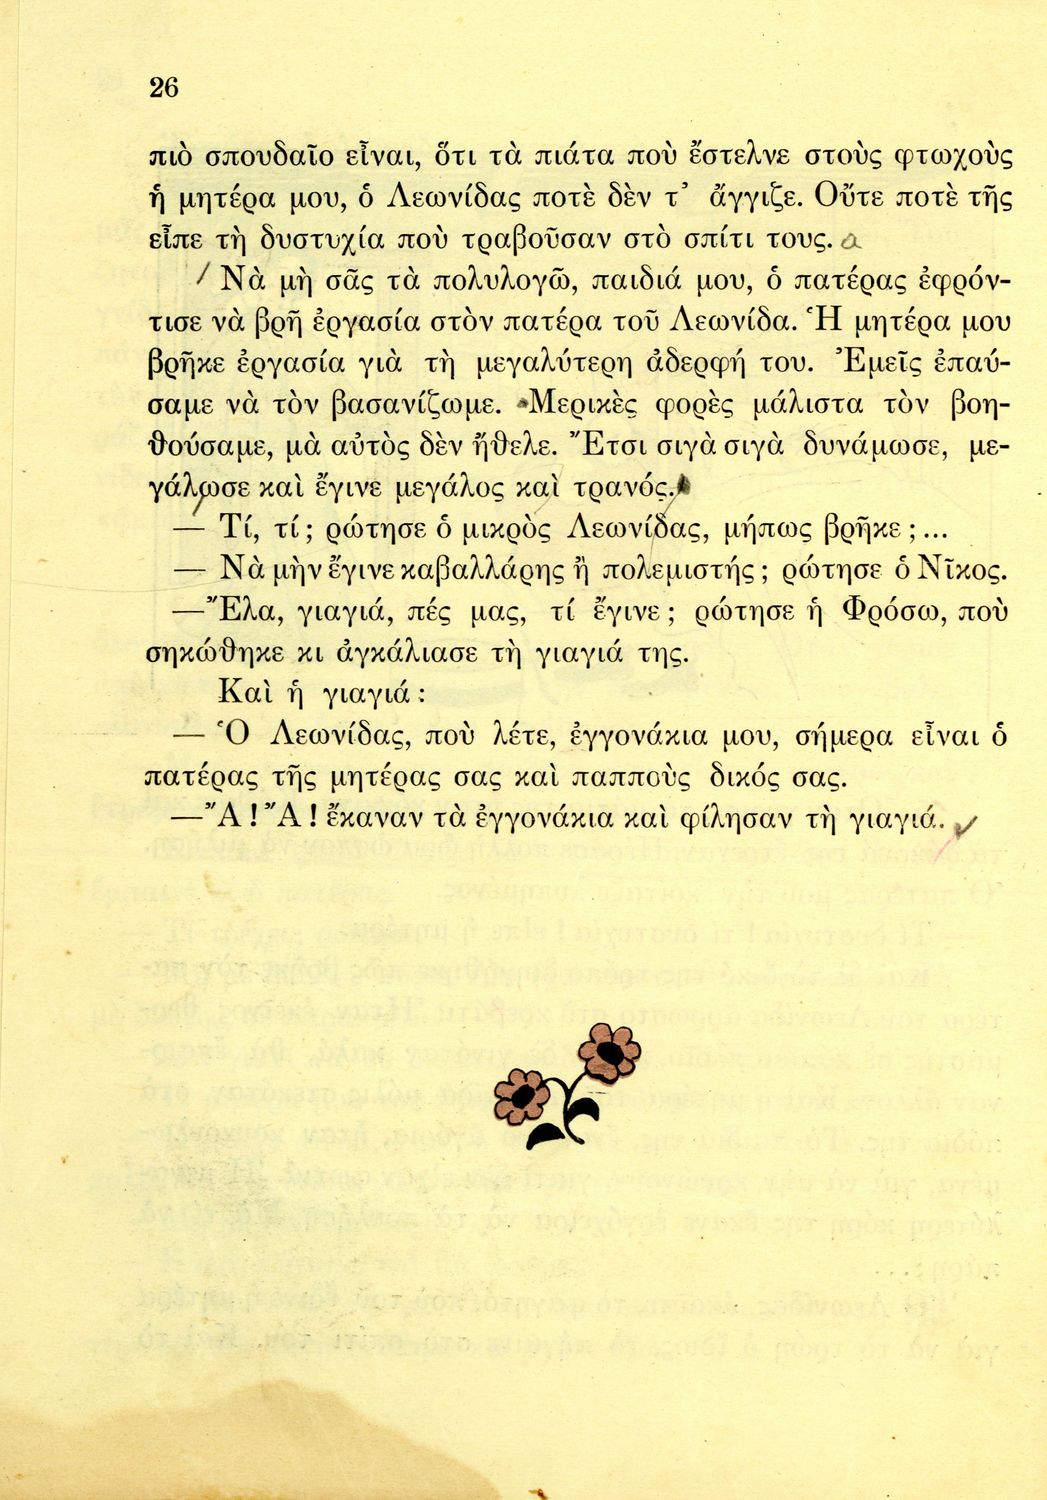 26
πιὸ σπουδαῖο εἶναι, ὅτι τὰ πιάτα ποὺ ἔστελνε στοὺς φτωχοὺς
ἡ μητέρα μου, ὁ Λεωνίδας ποτὲ δὲν τ᾿ ἄγγιζε. Οὔτε ποτὲ τῆς
εἶπε τὴ δυστυχία ποὺ τραβοῦσαν στὸ σπίτι τους.
Νὰ μὴ σᾶς τὰ πολυλογῶ, παιδιά μου, ὁ πατέρας ἐφρόν-
τισε νὰ βρῆ ἐργασία στὸν πατέρα τοῦ Λεωνίδα. Ἡ μητέρα μου
βρῆκε ἐργασία γιὰ τὴ μεγαλύτερη ἀδερφή του. Ἐμεῖς ἐπαύ-
σαμε νὰ τὸν βασανίζωμε. Μερικὲς φορὲς μάλιστα τὸν βοη-
θούσαμε, μὰ αὐτὸς δὲν ἤθελε. Ἔτσι σιγὰ σιγὰ δυνάμωσε, με-
γάλωσε καὶ ἔγινε μεγάλος καὶ τρανός.
— Τί, τί; ρώτησε ὁ μικρὸς Λεωνίδας, μήπως βρῆκε;...
— Νὰ μὴν ἔγινε καβαλλάρης ἢ πολεμιστής; ρώτησε ὁ Νῖκος.
— Ἔλα, γιαγιά, πές μας, τί ἔγινε; ρώτησε ἡ Φρόσω, ποὺ
σηκώθηκε κι ἀγκάλιασε τὴ γιαγιά της.
Καὶ ἡ γιαγιά:
— Ὁ Λεωνίδας, ποὺ λέτε, ἐγγονάκια μου, σήμερα εἶναι ὁ
πατέρας τῆς μητέρας σας καὶ παπποὺς δικός σας.
— Ἄ! Ἄ! ἔκαναν τὰ ἐγγονάκια καὶ φίλησαν τὴ γιαγιά.